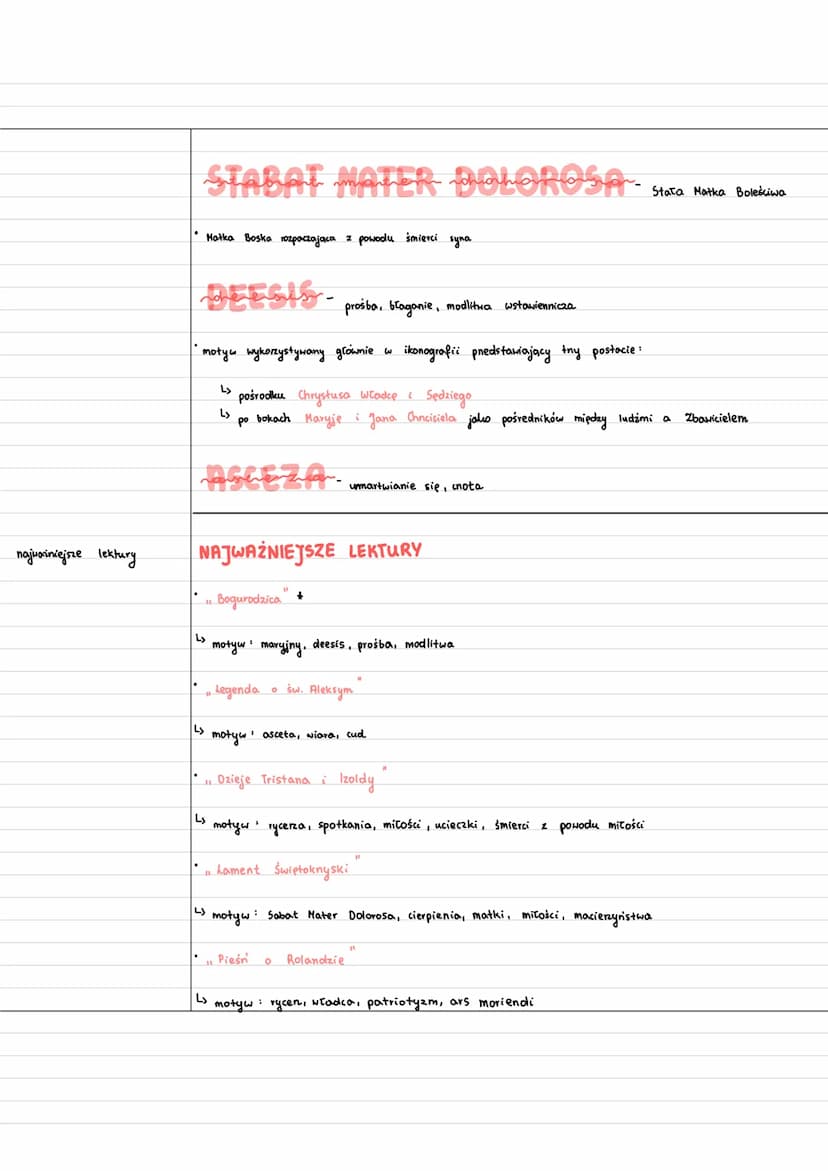 STABAT MATER DOLOROSA - Stała Matka Boleściwa
• Matka Boska rozpaczająca z powodu śmierci syna
DEESIS - prośba, błaganie, modlitwa wstawiennicza
• motyw wykorzystywany głównie w ikonografii przedstawiający trzy postacie:
↳ pośrodku Chrystusa Władcę i Sędziego
↳ po bokach Maryję i Jana Chrzciciela jako pośredników między ludźmi a Zbawicielem
ASCEZA - umartwianie się, cnota
najważniejsze lektury
NAJWAŻNIEJSZE LEKTURY
• „Bogurodzica" +
↳ motyw: maryjny, deesis, prośba, modlitwa
• „Legenda o św. Aleksym"
↳ motyw: asceta, wiara, cud
• „Dzieje Tristana i Izoldy"
↳ motyw: rycerza, spotkania, miłości, ucieczki, śmierci z powodu miłości
• „Lament Świętokrzyski"
↳ motyw: Sabat Mater Dolorosa, cierpienia, matki, miłości, macierzyństwa
• „Pieśń o Rolandzie"
↳ motyw: rycerz, władca, patriotyzm, ars moriendi